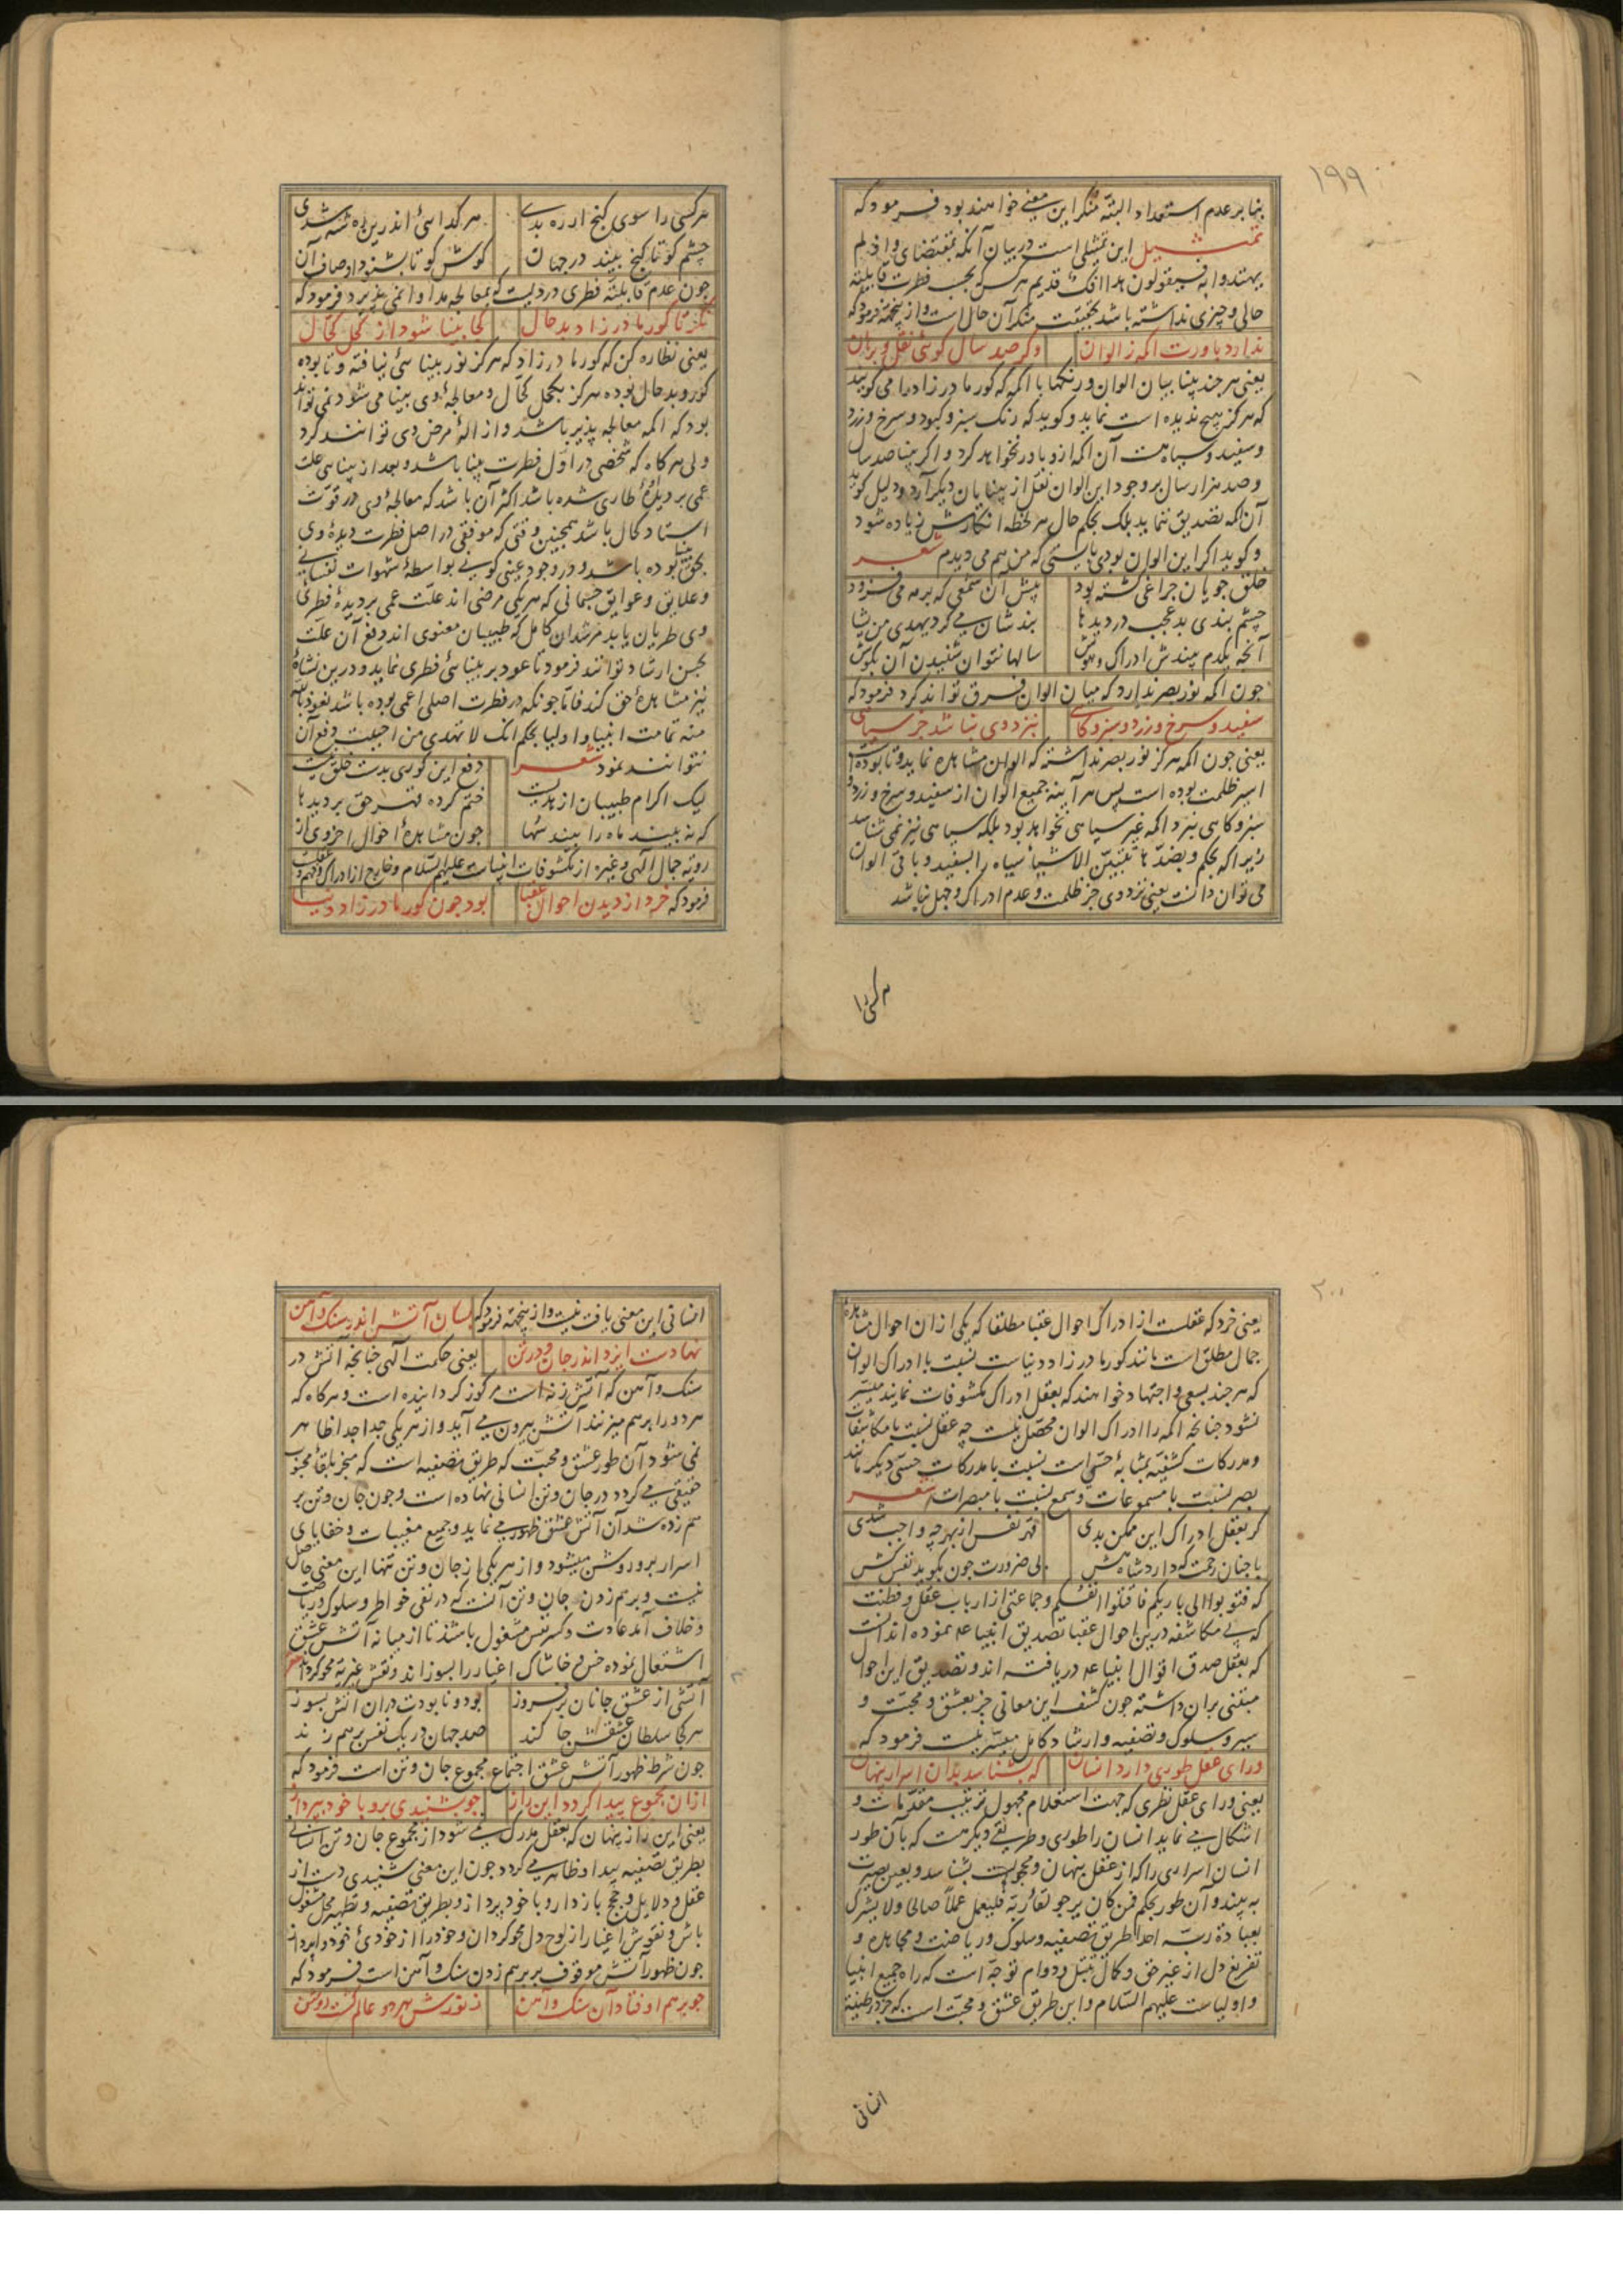 ١٩٩
بنا بر عدم استعداد البتّه منکر این معنی خواهند بود فرمودکه
تمثیل این تمثیلی است در بیان آنکه بمقتضای واذ لم
یهتدوا به فسیقولون هذا افک قدیم هر کس که بحسب فطرت قابلیّة
حالی و چیزی نداشته باشد بحقیقت منکر آن حال است و ازینجهة فرمود که
ندارد باورت اکمه ز الوان وکر صد سال کوئی نقل و برهان
یعنی هر چند بینا بیان الوان و رنکها با اکمه که کور مادر زاد را می کویند
که هرکز هیچ ندیده است نماید و کوید که رنک سبز و کبود و سرخ و زرد
و سفید و سیاه هست آن اکمه ازو باور نخواهد کرد و اکر بینا صد سال
و صد هزار سال بر وجود این الوان نقل از بینایان دیکر آرد و دلیل کوید
آن اکمه تصدیق ننماید بلک بحکم حال هر لحظه انکارش زیاده شود
و کوید اکر این الوان بودی بایستی که من هم می دیدم شعر
خلق جویان چراغی کشته بود پیش آن شمعی که بر مه می فزود
چشم بندی بد عجب در دیدها بندشان می کرد یهدی من یشا
آنچه یکدم بیندش ادراک و هوش سالها نتوان شنیدن آن بکوش
چون اکمه نور بصر ندارد که میان الوان فرق تواند کرد فرمود که
سفید و سرخ و زرد و سبز و کاهی بنزد وی نباشد جز سیاهی
یعنی چون اکمه هرکز نور بصر نداشته که الوان مشاهده نماید و تا بوده
اسیر ظلمت بوده است پس هر آینه جمیع الوان از سفید و سرخ و زرد و
سبز و کاهی بنزد اکمه غیر سیاهی نخواهد بود بلکه سیاهی نیز نمی شناسد
زیرا که بحکم و بضدّها تتبیّن الاشیاء سیاه را بسفید و باقی الوان
می توان دانست یعنی نزد وی جز ظلمت و عدم ادراک و جهل نباشد
هر کسی را
هر کسی را سوی کنج ار ره بدی هر کدائی اندرین ره شه شدی
چشم کو تا کنج بیند در جهان کوش کو تا بشنود اوصاف آن
چون عدم قابلیّة فطری دردیست که بمعالجه مداوا نمی پذیرد فرمود که
نکر تا کور مادر زاد بد حال کجا بینا شود از کحل کحّال
یعنی نظاره کن که کور مادر زاد که هرکز نور بینائی نیافته و تا بوده
کور و بد حال بوده هرکز بکحل کحّال و معالجۀ وی بینا می شود نمی تواند
بود که اکمه معالجه پذیر باشد و ازالۀ مرض وی توانند کرد
ولی هر کاه که شخصی در اوّل فطرت بینا باشد و بعد از بینایی علت
عمی بر دیدۀ طاری شده باشد اکثر آن باشد که معالجۀ وی در قوّت
استاد کحال باشد همچنین وقتی که موفقی در اصل فطرت دیدۀ وی
بحق بینا بوده باشد و در وجود عینی کونی بواسطۀ شهوات نفسانی
و علایق و عوایق جسمانی که هر یکی مرضی اند علّت عمی بر دیدۀ فطری
وی طریان یابد مرشدان کامل که طبیبان معنوی اند دفع آن علّت
بحسن ارشاد توانند فرمود تا عود بر بینائی فطری نماید و درین نشاۀ
نیز مشاهدۀ حق کند فامّا چونکه در فطرت اصلی اعمی بوده باشد نعوذ بالله
منه تمامت انبیا و اولیا بحکم انک لا تهدی من احببت دفع آن
نتوانند نمود شعر دفع این کوری بدست خلق نیست
لیک اکرام طبیبان از هدیست ختم کرده قهر حق بر دیدها
که نه بیند ماه را بیند سُها چون مشاهدۀ احوال اخروی از
رویة جمال الهی و غیره از مکشوفات انبیاست علیهم السّلام و خارج از ادراک و فهم
فرمود که خرد از دیدن احوال عقبا بود چون کور مادر زاد دنیا
٢٠٠
یعنی خرد که عقلست از ادراک احوال عقبا مطلقا که یکی از ان احوال مشاهدۀ
جمال مطلق است مانند کور مادر زاد دنیاست نسبت با ادراک الوان
که هر چند بسعی و اجتهاد خواهند که بعقل ادراک مکشوفات نمایند میسّر
نشود چنانچه اکمه را ادراک الوان محصّل نیست چه عقل نسبت با مکاشفات
و مدرکات کشفیّه بمثابۀ حسّی است نسبت با مدرکات حسّی دیکر مانند
بصر نسبت با مسموعات و سمع نسبت با مبصرات شعر
کر بعقل ادراک این ممکن بدی قهر نفس از بهر چه واجب شدی
با چنان رحمت که دارد شاه هش بی ضرورت چون بکوید نفس کش
که فتوبوا الی بارئکم فاقتلوا انفسکم و جماعتی از ارباب عقل و فطنت
که بی مکاشفه درین احوال عقبا تصدیق انبیا عم نموده اند آنست
که بعقل صدق اقوال انبیا عم دریافته اند و تصدیق این احوال
مبتنی بران داشته چون کشف این معانی جز بعشق و محبّت و
سیر و سلوک و تصفیه و ارشاد کامل میسّر نیست فرمود که
ورای عقل طوری دارد انسان که بشناسد بدان اسرار پنهان
یعنی ورای عقل نظری که جهت استعلام مجهول ترتیب مقدّمات و
اشکال می نماید انسان را طوری و طریقی دیکر هست که بان طور
انسان اسراری را که از عقل پنهان و محجوبست بشناسد و بعین بصیرت
به بیند و آن طور بحکم فمن کان یرجو لقاء ربّه فلیعمل عملاً صالحا ولا یشرک
بعبادة ربّه احدا طریق تصفیه و سلوک و ریاضت و مجاهده و
تفریغ دل از غیر حق و کمال تبتل و دوام توجّه است که راه جمیع انبیا
و اولیاست علیهم السّلام و این طریق عشق و محبّت است که جز در طینة
انسانی
انسانی این معنی یافت نیست و ازینجهة فرمود که بسان آتش اندر سنک و آهن
نهادست ایزد اندر جان و در تن یعنی حکمت الهی چنانچه آتش در
سنک و آهن که آتش زنه است مرکوز کردانیده است و هر کاه که
هر دو را بر هم میزنند آتش بیرون می آید و از هر یکی جدا جدا ظاهر
نمی شود آن طور عشق و محبّت که طریق تصفیه است که منجر بلقاء محبوب
حقیقی می کردد در جان و تن انسانی نهاده است و چون جان و تن بر
هم زده شد آن آتش عشق ظهور می نماید و جمیع مغیبات و خفایای
اسرار برو روشن میشود و از هر یکی از جان و تن تنها این معنی حاصل
نیست و بر هم زدن جان و تن آنست که در نفی خواطر و سلوک و ریاضت
و خلاف آمد عادت و کسر نفس مشغول باشند تا از میانه آتش عشق
اشتعال نموده خس و خاشاک اغیار را بسوزاند و نقش غیریّة محو کرداند شعر
آتشی از عشق جانان بر فروز بود و نابودت دران آتش بسوز
هر کجا سلطان عشقش جا کند صد جهان در یک نفس بر هم زند
چون شرط ظهور آتش عشق اجتماع مجموع جان و تن است فرمود که
ازان مجموع پیدا کردد این راز چو بشنیدی برو با خود بپرداز
یعنی این راز پنهان که بعقل مدرک نمی شود از مجموع جان و تن انسانی
بطریق تصفیه پیدا و ظاهر می کردد چون این معنی شنیدی دست از
عقل و دلایل و حجج باز دار و با خود پرداز و بطریق تصفیه و تطهیر محل مشغول
باش و نقوش اغیار از لوح دل محو کردان و خود را از خودی خود واپرداز
چون ظهور آتش موقوف بر بر هم زدن سنک و آهن است فرمود که
چو بر هم اوفتاد آن سنک و آهن ز نورش هر دو عالم کشت روشن